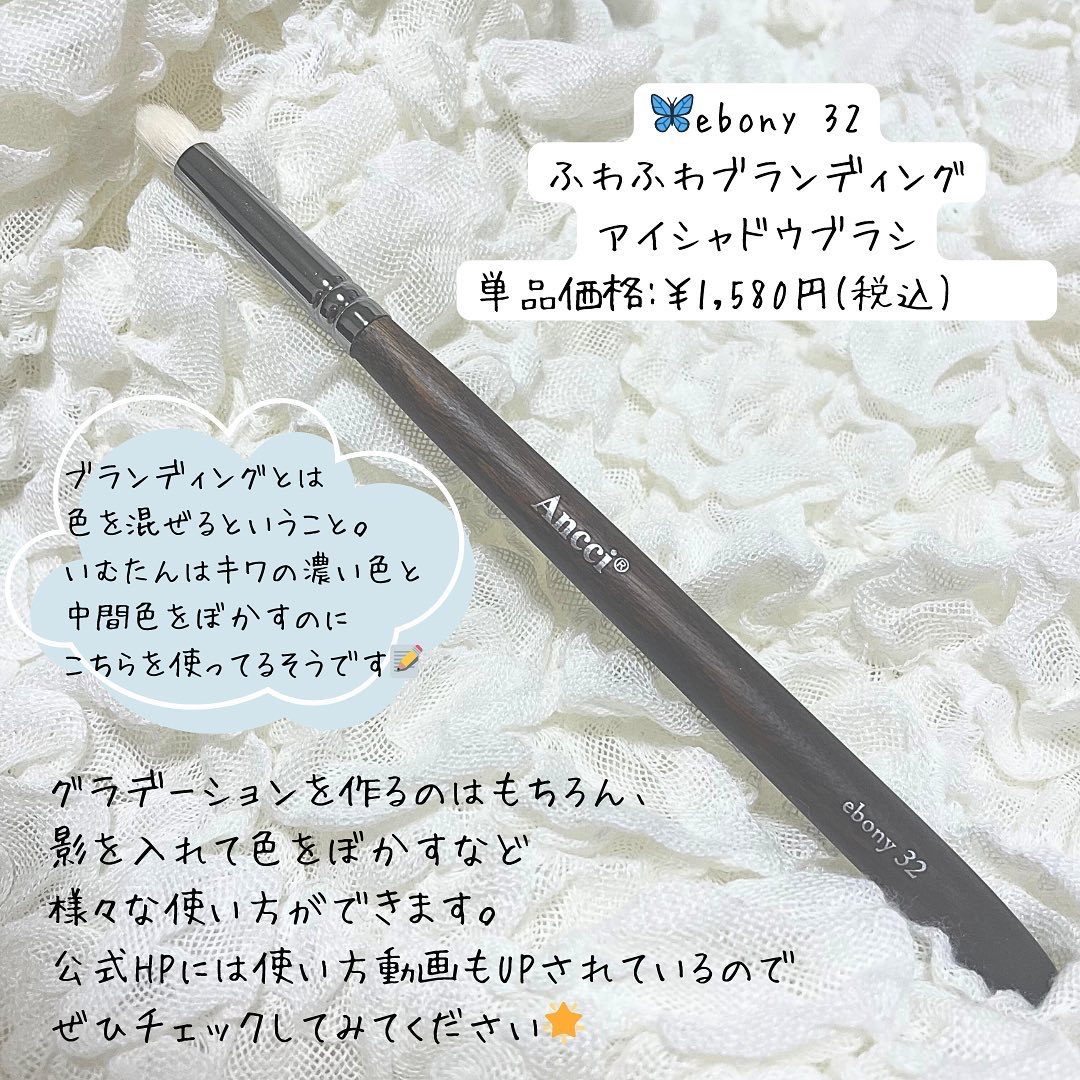 🦋ebony 32
ふわふわブランディング
アイシャドウブラシ
単品価格:¥1,580円(税込)
Ancci®
ブランディングとは
色を混ぜるということ。
いむたんはキワの濃い色と
中間色をぼかすのに
こちらを使ってるそうです📝
ebony 32
グラデーションを作るのはもちろん、
影を入れて色をぼかすなど
様々な使い方ができます。
公式HPには使い方動画もUPされているので
ぜひチェックしてみてください🌟